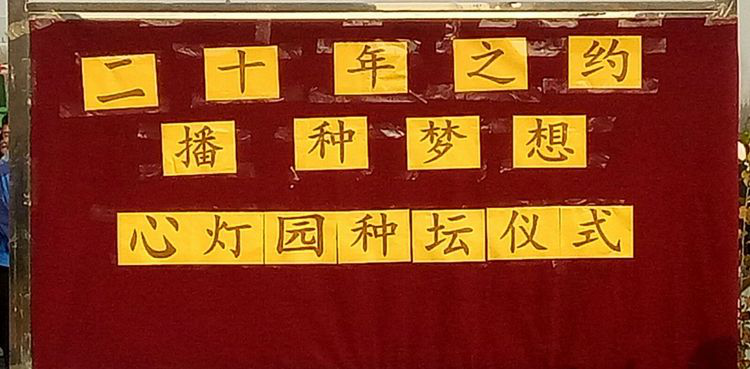 二十年之约
播种梦想
心灯园种坛仪式